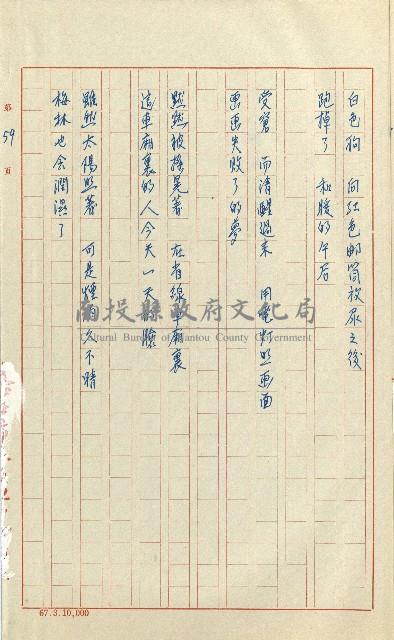 白色狗 向紅色郵筒放尿之後
跑掉了 和暖的午后
受窘 而清醒過來 用電灯照画面
画画失敗了的夢
黙黙被搖晃著 在省線車廂裏
這車廂裏的人今天一天 臉
雖然太陽照著 可是煙 久不晴
梅林也会潤濕了
第 59 頁
南投縣政府文化局
Cultural Bureau of Nantou County Government
67.3.10,000